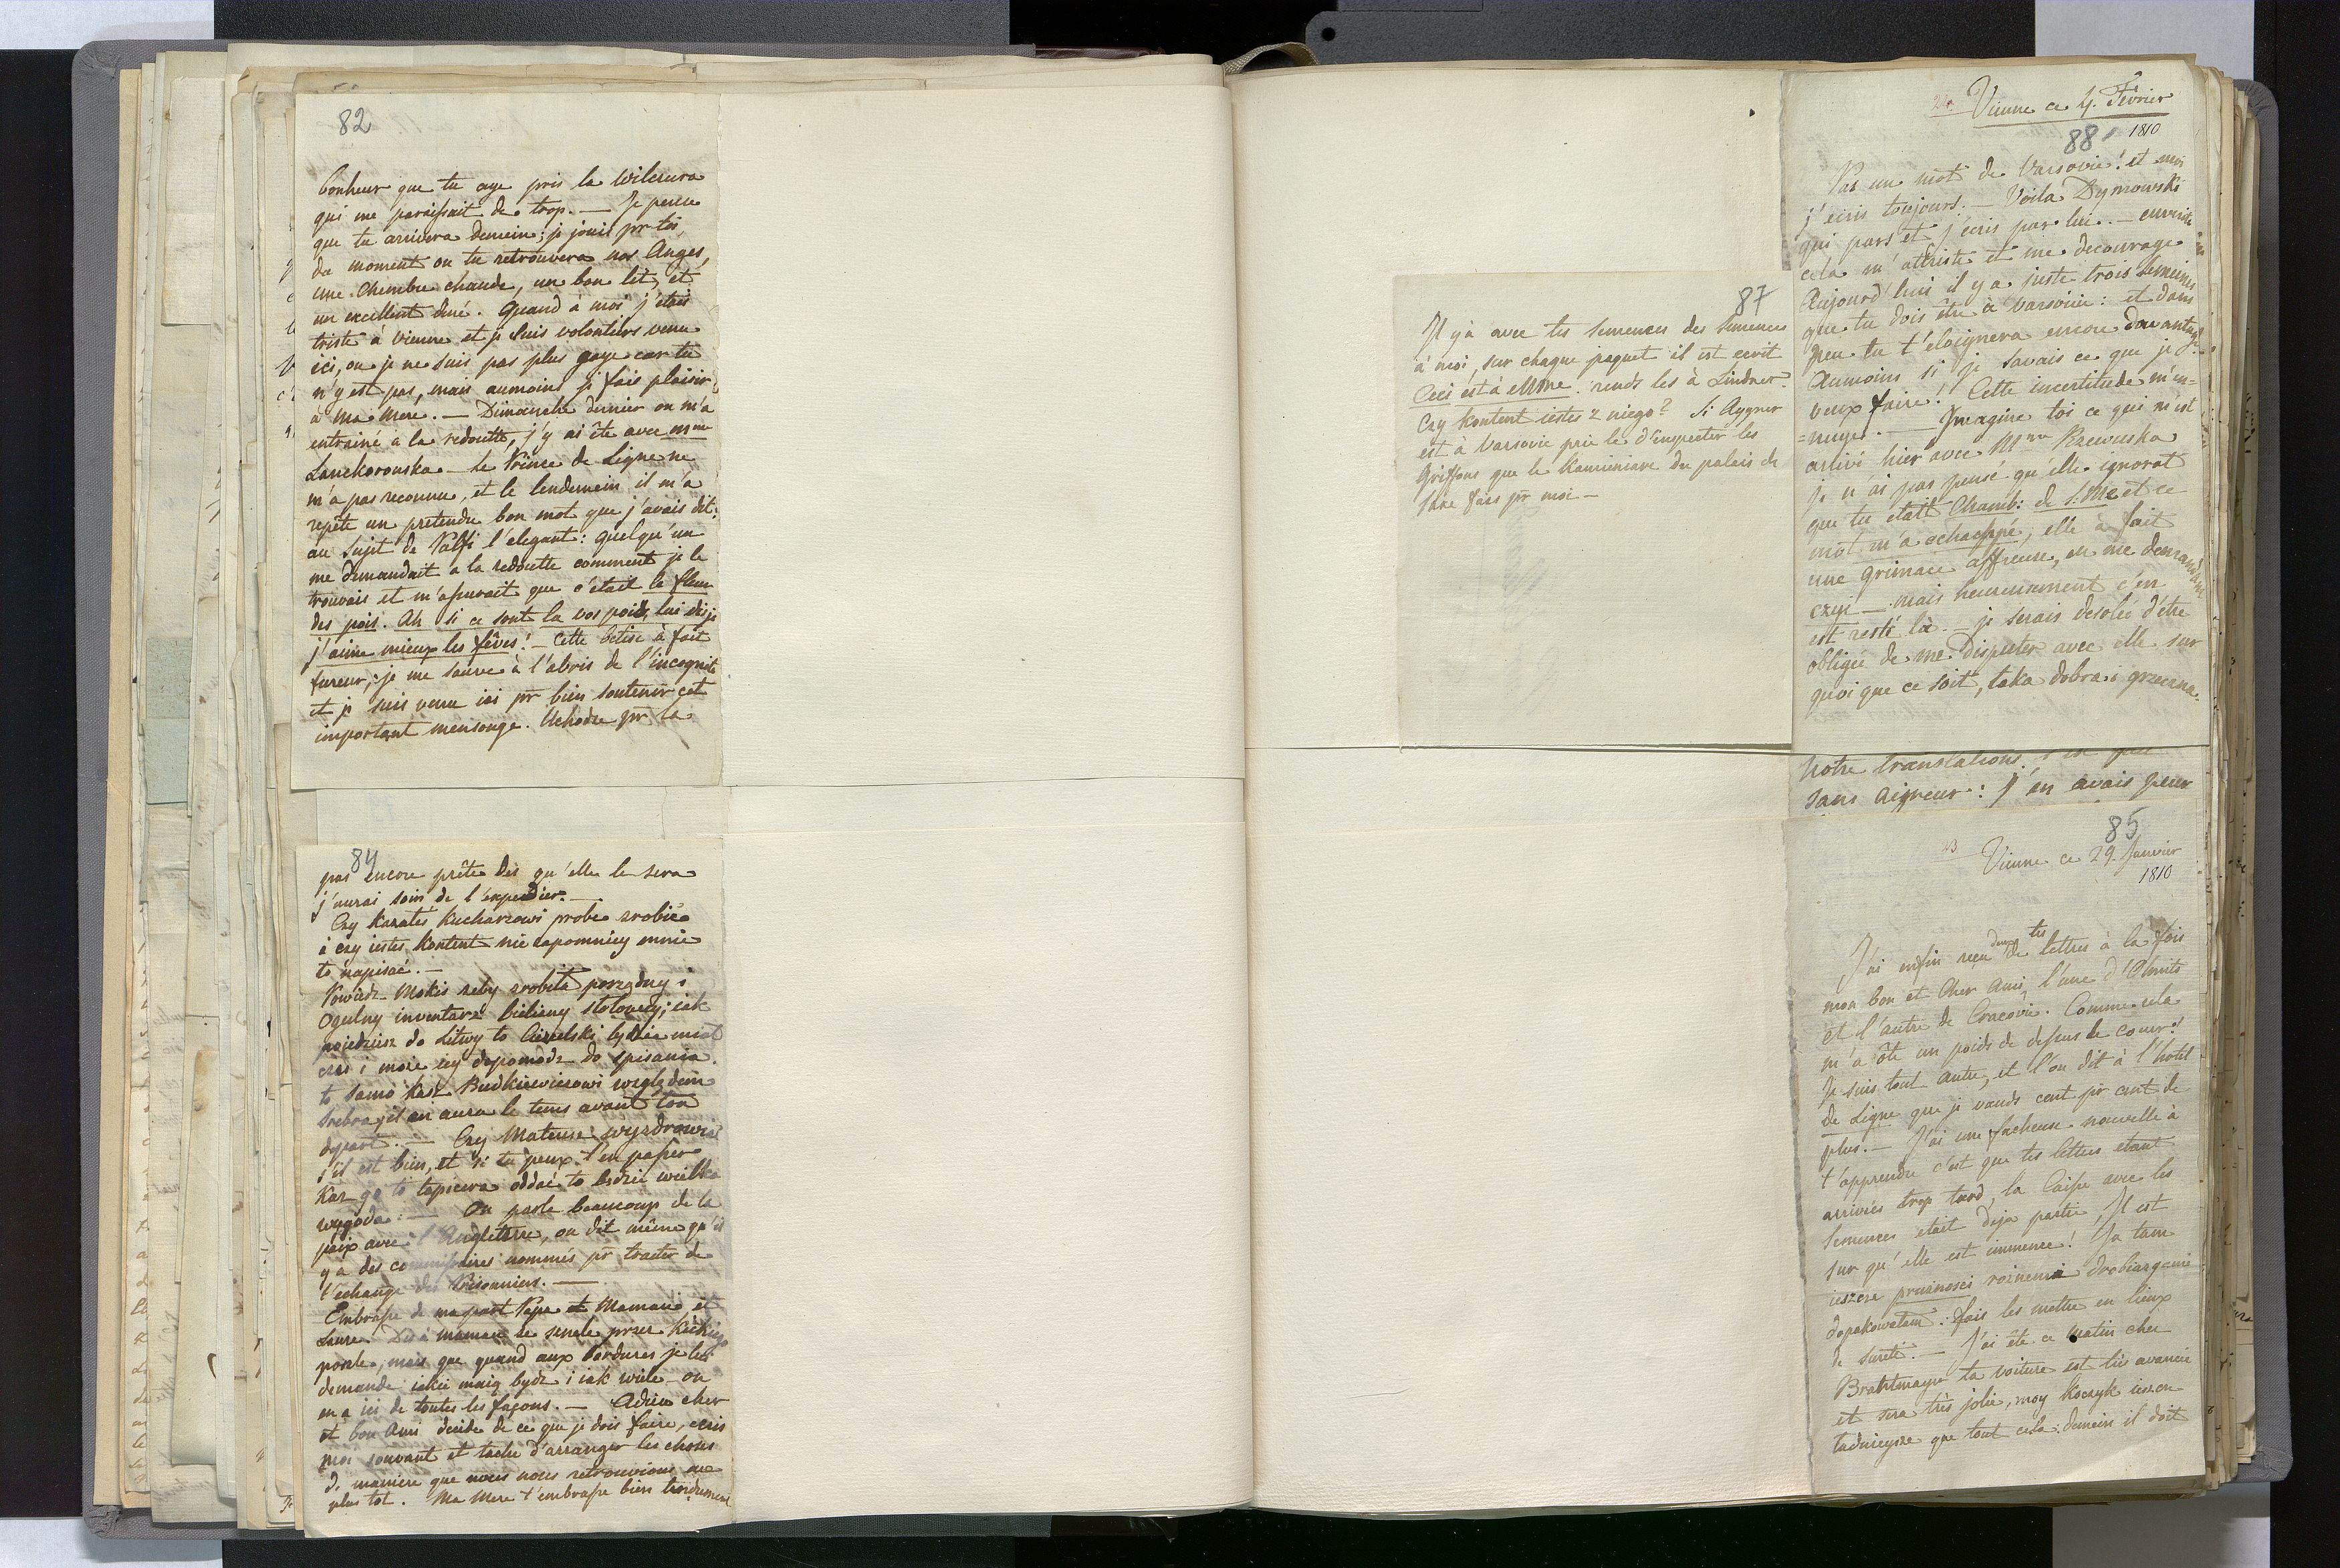 82
bonheur que tu aye pris la Wilczura
qui me paraissait de trop. — Je pense
que tu arrivera demain; je jouis pr toi,
du moment ou tu retrouvera nos Anges,
une chambre chaude, un bon lit, et
un excellent diné. Quand à moi j'étais
triste à Vienne et je suis volontiers venu
ici, ou je ne suis pas plus gaye car tu
n'y est pas, mais aumoins je fais plaisir
à Ma Mere. — Dimanche dernier on m'a
entrainé a la redoutte, j'y ai été avec Mme
Lanckoronska — Le Prince de Ligne ne
m'a pas reconnu, et le lendemain il m'a
repété un pretendu bon mot que j'avais dit:
au sujet de Palfi l'elegant: quelqu'un
me demandait a la redoutte comment je le
trouvais et m'assurait que c'était la fleur
des pois. Ah si ce sont la vos pois, lui dis je
j'aime mieux les fèves! — Cette betise à fait
fureur, je me sauve à l'abris de l'incognito
et je suis venu ici pr bien soutenir cet
important mensonge. Uchodze pr la
84
pas encore prête des qu'elle le sera
j'aurai soin de l'expedier. —
Czy kazałeś Kucharzowi probe zrobić
i czy iestes kontent nie zapomniey mnie
to napisać. —
Powiedz Mskis zeby zrobiła porządny i
Ogulny inventarz bielizny stołowey; iak
poiedziesz do Litwy to Cizelski będzie miał
czas i może iey dopomódz do spisania
to samo każ Budkiewiczowi względem
srebra, il en aura le tems avant ton
depart. — Czy Mateusz wyzdrowiał
s'il est bien, et si tu peux t'en passer
Każ go to tapicera oddać to będzie wielka
wygoda. — On parle beaucoup de la
paix avec l'Angleterre, on dit même qu'il
y a des commissaires nommés pr traiter de
l'échange des Prisonniers. —
Embrasse de ma part Papa et Maman, et
Laure. Dis à maman ze senele przez Kickiego
posele, mais que quand aux bordures je lui
demande iakie maią bydz i iak wiele — on
en a ici de toutes les façons. — Adieu cher
et bon Ami decide de ce que je dois faire, ecris
moi souvant et tache d'arranger les choses
de maniere que nous nous retrouvions au
plus tot. Ma Mere t'embrasse bien tendrement
87
Il y à avec tes semences des semences
à moi, sur chaque paquet il est ecrit
Ceci est à Mme. rends les à Lindner.
Czy kontent iestes z niego? Si Aygner
est à Varsovie prie le d'inspecter les
Griffons que le Kamieniarz du palais de
Saxe fais pr moi —
Vienne ce 4. Février
88 1810
Pas un mot de Varsovie! et moi
j'ecris toujours. — Voila Dymowski
qui pars et j'ecris par lui. — ensuite
cela m'attriste et me decourage
Aujourd'hui il y a juste trois semaines
que tu dois être à Varsovie: et dans
peu tu t'eloignera encore davantage
Aumoins si je savais ce que je
veux faire! Cette incertitude m'en=
=nuye. — Imagine toi ce qui m'est
arrivé hier avec Mme Rzewuska
je n'ai pas pensé qu'elle ignorat
que tu etait Chamb: de S. M. et ce
mot m'a echappé, elle à fait
une grimace affreuse, en me demandant
czyi — mais heureusement c'en
est resté là. — je serais desolée d'être
obligée de me disputer avec elle sur
quoi que ce soit, taka dobra i grzeczna.
notre translations.
sans aigreur: j'en avais peur
85
23 Vienne ce 29. Janvier
1810
J'ai enfin reçu deux de tes lettres à la fois
mon bon et Cher Ami, l'une d'Olmits
et l'autre de Cracovie. Comme cela
m'a ôté un poids de dessus le cœur!
Je suis tout autre, et l'on dit à l'hotel
de Ligne que je vauds cent pr cent de
plus. — J'ai une facheuse nouvelle à
t'apprendre c'est que tes lettres etant
arrivées trop tard, la Caisse avec les
semences etait deja partie, Il est
sur qu'elle est immence! Ja tam
ieszcze prużnosci roznemi drobiazgami
dopakowałam: fais les mettre en lieux
de sureté. — J'ai été ce matin chez
Brandmayer ta voiture est très avancée
et sera très jolie, moy koczyk ieszcze
ładnieyszy que tout cela. demain il doit